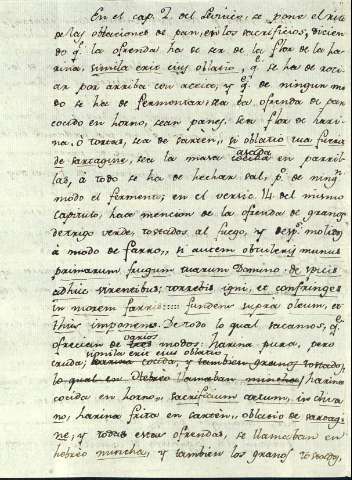 En el cap. 2. del Levitico, se pone el rito
de las oblaciones de pan, en los sacrificios, dicien
do q.e la ofrenda ha de ser de la flor de la ha
rina, simila erit eius oblatio, q.e se ha de roci
ar por arriba con aceite, y q.e de ningun mo
do se ha de fermentar, sea la ofrenda de pan
cocido en horno, sean panes, sea flor de harri
na, ó tortas, sea de sartèn, si oblatio tua fuerit
de sartagine, sea la masa cocida en parri
llas, à todo se ha de hechar sal, p.o de ning.n
modo el fermento; en el versic. 14. del mismo
Capitulo, hace mencion de la ofrenda de granos
de trigo verde, tostados al fuego, y desp.s molidos
à modo de farro,, si autem obtuleris munus
primarum frugum tuarum Domino, de spicis
adhuc virentibus, torrebis igni, et confringes
in morem farris::::: fundens supra oleum, et
thus imponens. De todo lo qual sacamos, q.e
ofrecian de varios modos: harina pura, pero
cruda; simila erit eius oblatio
cocida, y tambien granos tostados,
lo qual en Hebreo llamaban mincha, harina
cocida en horno,, sacrificium coctum, in cliva
no, harina frita en sartèn,, oblatio de sartagi
ne; y todas estas ofrendas, se llamaban en
hebreo mincha, y tambien los granos tostados,